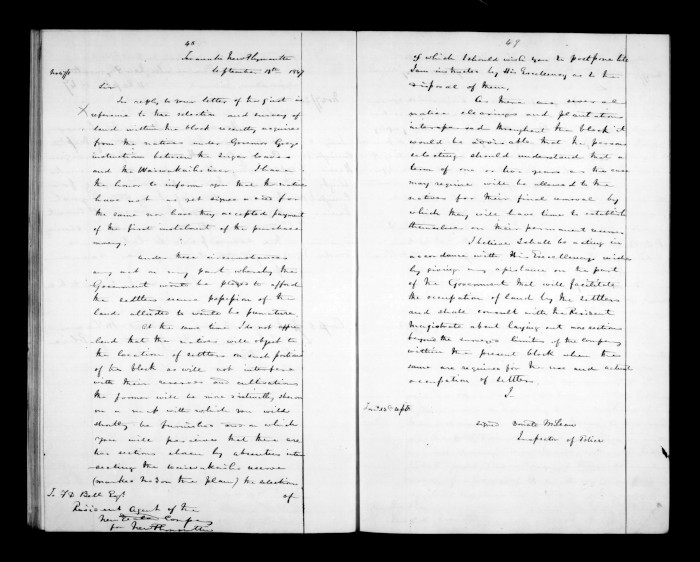 48
Taranaki New Plymouth
September 18th 1847
Sir
In reply to your letter of the 9 inst in
reference to the selection and survey of
land within the block recently acquired
from the natives under Governor Greys
instructions between the Sugar loaves
and the Waiwakaiho river, I have
the honor to inform you that the natives
have not as yet signed a deed for
the same nor have they accepted payment
of the first instalment of the purchase
money.
Under these circumstances
any act on my part whereby the
Government would be pledged to afford
the settlers secure possession of the
land allotted to would be premature.
At the same time I do not
that the natives will object to
the location of settlers on such portions
of the block as will not interfere
with their reserves and cultivations
the former will be more distinctly shewn
on a map with which you will
shortly be furnished and on which
you will perceive that there are
two sections chosen by absentees
the Waiwakaiho reserve
(marked No 3 on the plan) the selection
of
To F D Bell Esqr
Resident Agent of the
New Zealand Company
for New Plymouth
49
of which I should wish you to postpone till
I am instructed by His Excellency as to the
disposal of them.
As there are several
native clearings and plantations
interspersed throughout the block it
would be desirable that the persons
selecting should understand that a
term of one or two years as the case
may require will be allowed to the
natives for their final removal by
which they will have time to establish
themselves on their permanent reserves
I believe I shall be acting in
accordance with His Excellency's wishes
by giving any assistance on the part
of the Government that will facilitate
the occupation of land by the settlers
and shall consult with the Resident
Magistrate about laying out more sections
beyond the surveyed limits of the Company
within the present block when the
same are required for the use and actual
occupation of settlers.
I
signed Donald McLean
Inspector of Police